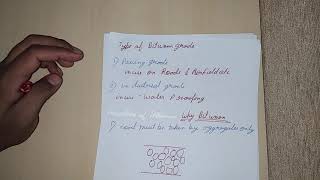 Type of Bitumen grade
1) Paving grade
in use on Roads & Airfield etc
2) industrial grade
in use - water Proofing
Why Bitumen
1) load must be taken by aggregates only